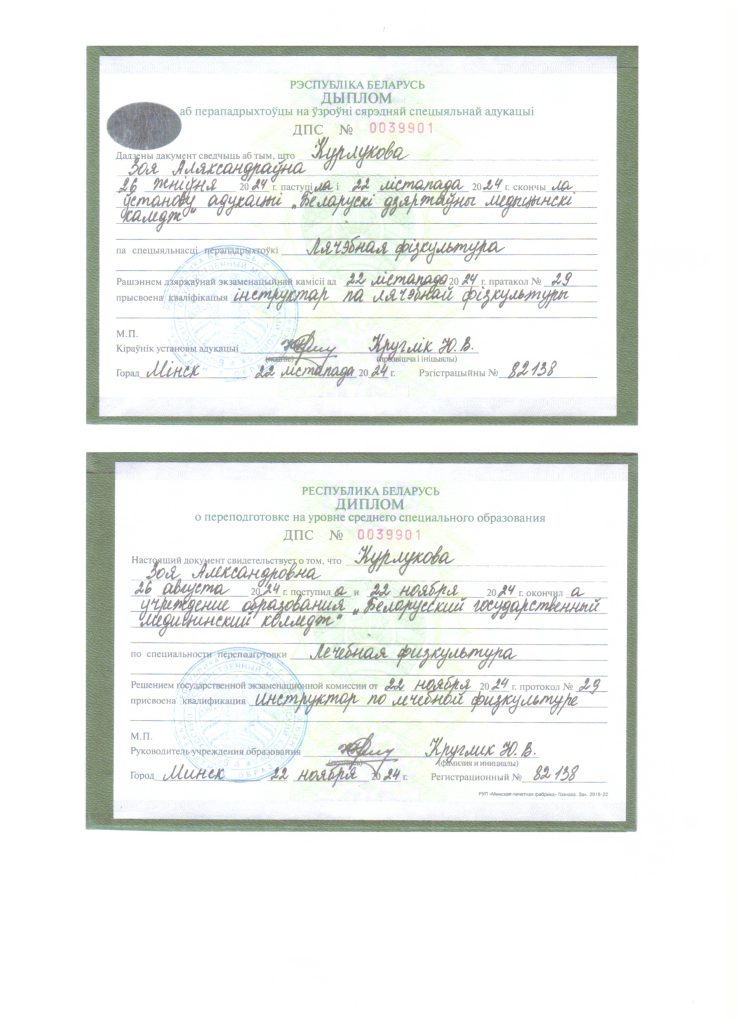 РЭСПУБЛІКА БЕЛАРУСЬ
ДЫПЛОМ
аб перападрыхтоўцы на ўзроўні сярэдняй спецыяльнай адукацыі
ДПС № 0039901
Дадзены дакумент сведчыць аб тым, што Курлукова
Зоя Аляксандраўна
26 жніўня 2024 г. паступіла і 22 лістапада 2024 г. скончыла
ўстанову адукацыі „Беларускі дзяржаўны медыцынскі
каледж“
па спецыяльнасці перападрыхтоўкі Лячэбная фізкультура
Рашэннем дзяржаўнай экзаменацыйнай камісіі ад 22 лістапада 2024 г. пратакол № 29
прысвоена кваліфікацыя інструктар па лячэбнай фізкультуры
М.П.
Кіраўнік установы адукацыі Круглік Ю. В.
(подпіс) (прозвішча і ініцыялы)
Горад Мінск 22 лістапада 2024 г. Рэгістрацыйны № 82138
РЕСПУБЛИКА БЕЛАРУСЬ
ДИПЛОМ
о переподготовке на уровне среднего специального образования
ДПС № 0039901
Настоящий документ свидетельствует о том, что Курлукова
Зоя Александровна
26 августа 2024 г. поступила и 22 ноября 2024 г. окончила
учреждение образования „Белорусский государственный
медицинский колледж“
по специальности переподготовки Лечебная физкультура
Решением государственной экзаменационной комиссии от 22 ноября 2024 г. протокол № 29
присвоена квалификация инструктор по лечебной физкультуре
М.П.
Руководитель учреждения образования Круглик Ю. В.
(подпись) (фамилия и инициалы)
Город Минск 22 ноября 2024 г. Регистрационный № 82138
РУП «Минская печатная фабрика» Гознака. Зак. 2616-22